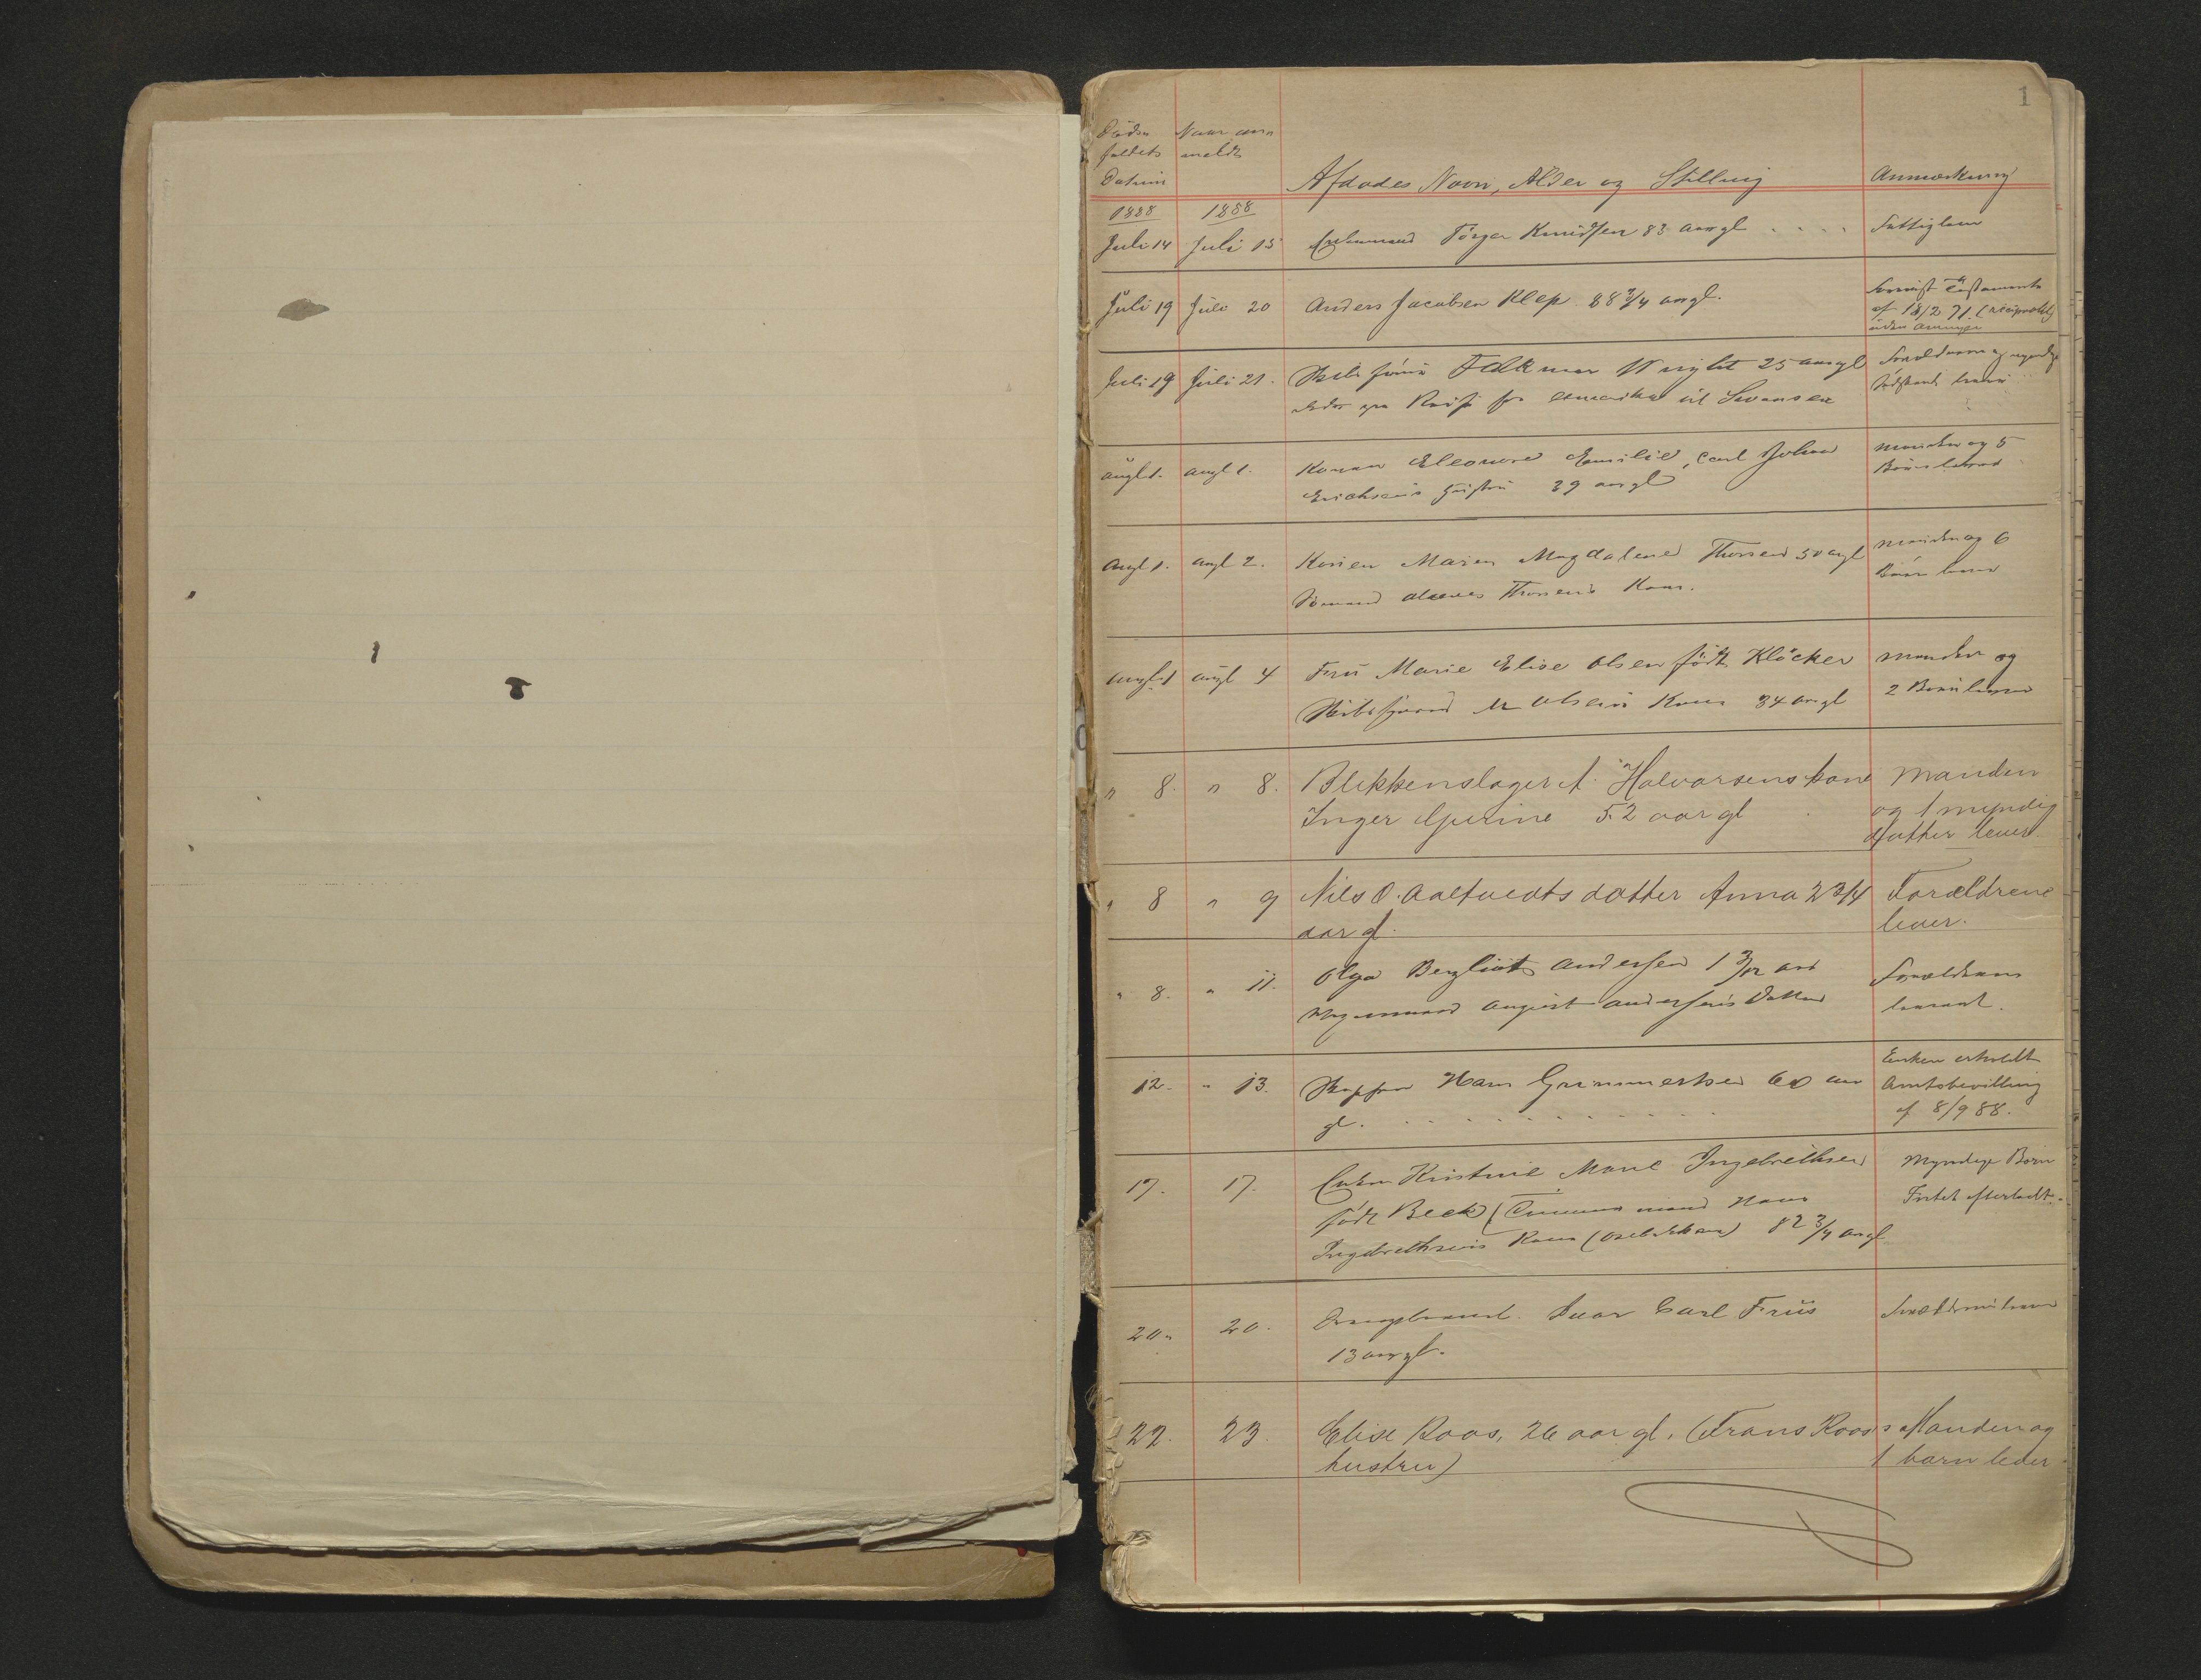 1
Døds Naar an
faldets meldt
Datum Afdødes Navn, Alder og Stilling Anmærkning
1888 1888
Juli 14 Juli 15 Enkemand Knudsen 83 aar gl . . . . Fattiglem
Juli 19 Juli 20 Anders Jacobsen Klep 88 3/4 aar gl. Testamente
af 18/2 71. (reciprokt)
uden
Juli 19 Juli 21. Falkmar Wright 25 aar gl Forældrene og myndige
Reise fra Amerika til Swansea Sødskende
Augt 1. Augt 1. Konen Eleonore Emilie, Carl Johan Manden og 5
Erichsens Hustru 39 aar gl Børn
Augt 1. Augt 2. Konen Maren Magdalene Thorsen 50 aar gl Manden og 6
Sømand Thorsens Kone. Børn lever
Augt 1 Augt 4 Fru Marie Elise Olsen født Klöcker Manden og
Skibsfører M Olsens Kone 34 aar gl 2 Børn lever
" 8. " 8. Blikkenslager A. Halvorsens kone Manden
Inger Gurine 52 aar gl og 1 myndig
datter lever
" 8 " 9 Nils O. Aaltvedts datter Anna 2 3/4 Forældrene
aar gl. lever.
" 8. " 11. Olga Bergliot Andersen 1 3/12 aar Forældrene
August Andersens Datter
12. " 13. Hans Gummertsen 60 aar Enken erholdt
gl. . . . . . . . . . . . Amtsbevilling
af 8/9 88.
17. 17. Enken Kirstine Marie Ingebrethsen Myndige Børn
født Beck (Tømmermand Hans Intet efterladt.
Ingebrethsens Kone 82 3/4 aar gl
20. 20. Ivar Carl Friis Forældrene lever
13 aar gl.
22. 23. Elise Roos, 26 aar gl. (Frans Roos's Manden og
hustru) 1 barn lever